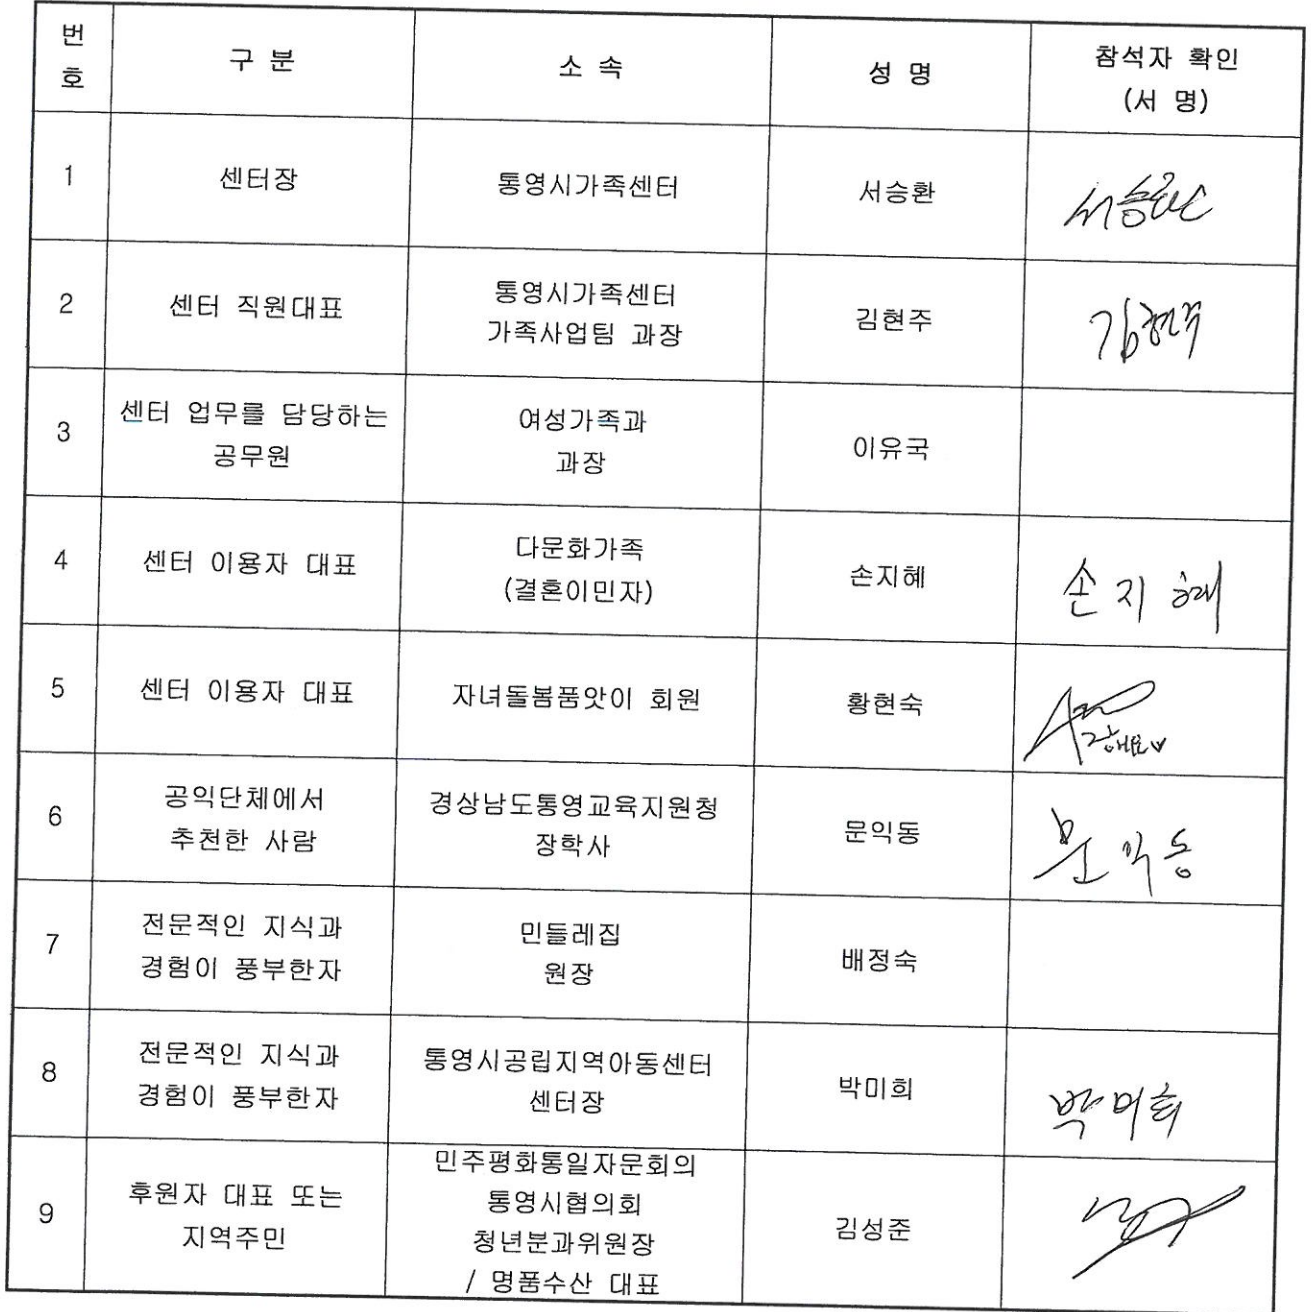 번호
구 분
소 속
성 명
참석자 확인
(서 명)
1
센터장
통영시가족센터
서승환
서승환
2
센터 직원대표
통영시가족센터
가족사업팀 과장
김현주
김현주
3
센터 업무를 담당하는
공무원
여성가족과
과장
이유국
4
센터 이용자 대표
다문화가족
(결혼이민자)
손지혜
손지혜
5
센터 이용자 대표
자녀돌봄품앗이 회원
황현숙
6
공익단체에서
추천한 사람
경상남도통영교육지원청
장학사
문익동
문익동
7
전문적인 지식과
경험이 풍부한자
민들레집
원장
배정숙
8
전문적인 지식과
경험이 풍부한자
통영시공립지역아동센터
센터장
박미희
박미희
9
후원자 대표 또는
지역주민
민주평화통일자문회의
통영시협의회
청년분과위원장
/ 명품수산 대표
김성준